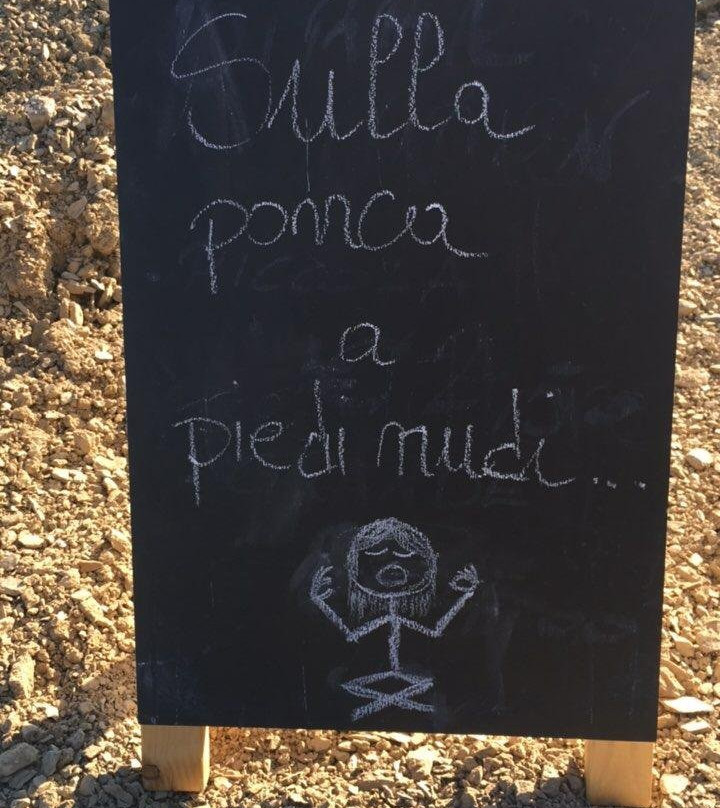 Sulla
panca
a
piedi nudi...